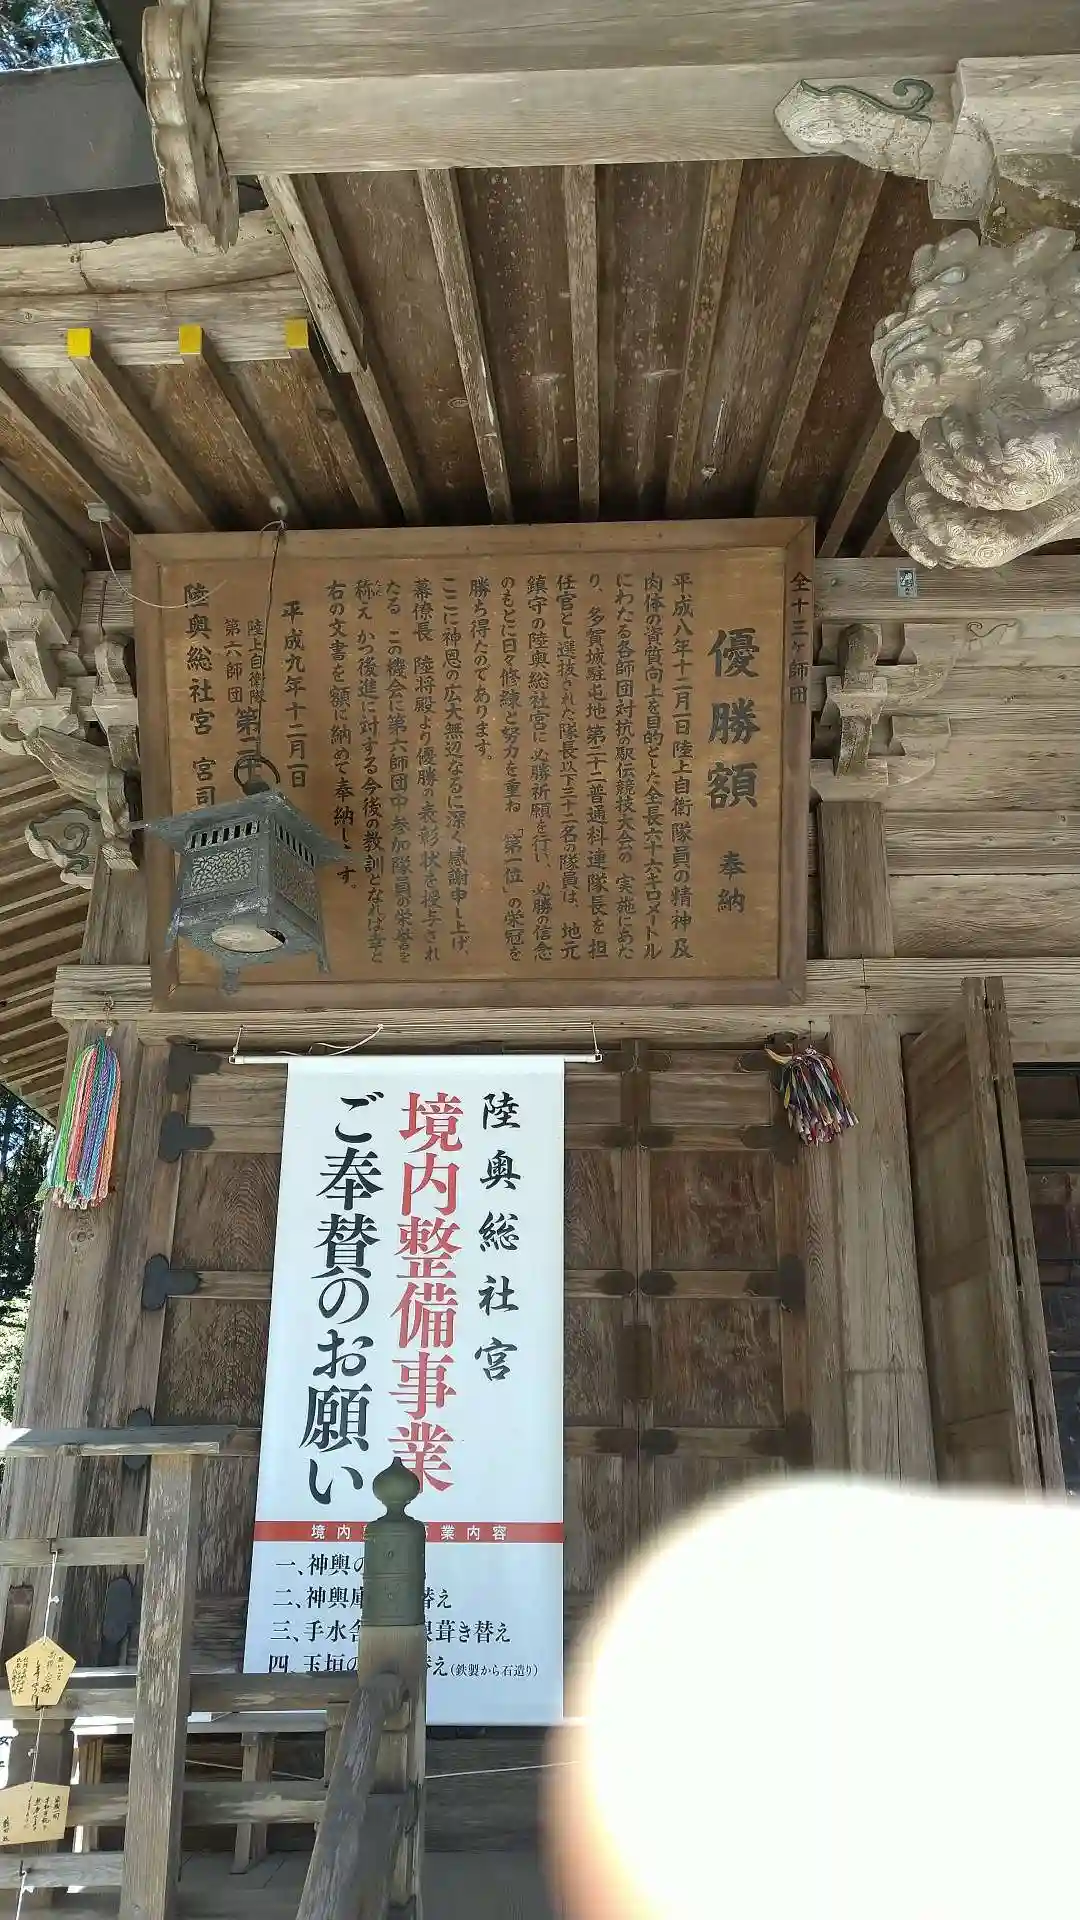 全十三ヶ師団
優勝額 奉納
平成八年十二月一日陸上自衛隊員の精神及
肉体の資質向上を目的とした全長六十六キロメートル
にわたる各師団対抗の駅伝競技大会の実施にあた
り、多賀城駐屯地第二十二普通科連隊長を担
任官とし選抜された隊長以下三十二名の隊員は、地元
鎮守の陸奥総社宮に必勝祈願を行い、必勝の信念
のもとに日々修練と努力を重ね「第一位」の栄冠を
勝ち得たのであります。
ここに神恩の広大無辺なるに深く感謝申し上げ、
幕僚長 陸将殿より優勝の表彰状を授与され
たる この機会に第六師団中参加隊員の栄誉を
称え かつ後進に対する今後の教訓となれば幸と
右の文書を額に納めて奉納します。
平成九年十二月一日
陸上自衛隊
第六師団
第二十
陸奥総社宮 宮司
陸奥総社宮
境内整備事業
ご奉賛のお願い
境内 業内容
一、神輿の
二、神輿庫 替え
三、手水舎 根葺き替え
四、玉垣の 替え(鉄製から石造り)